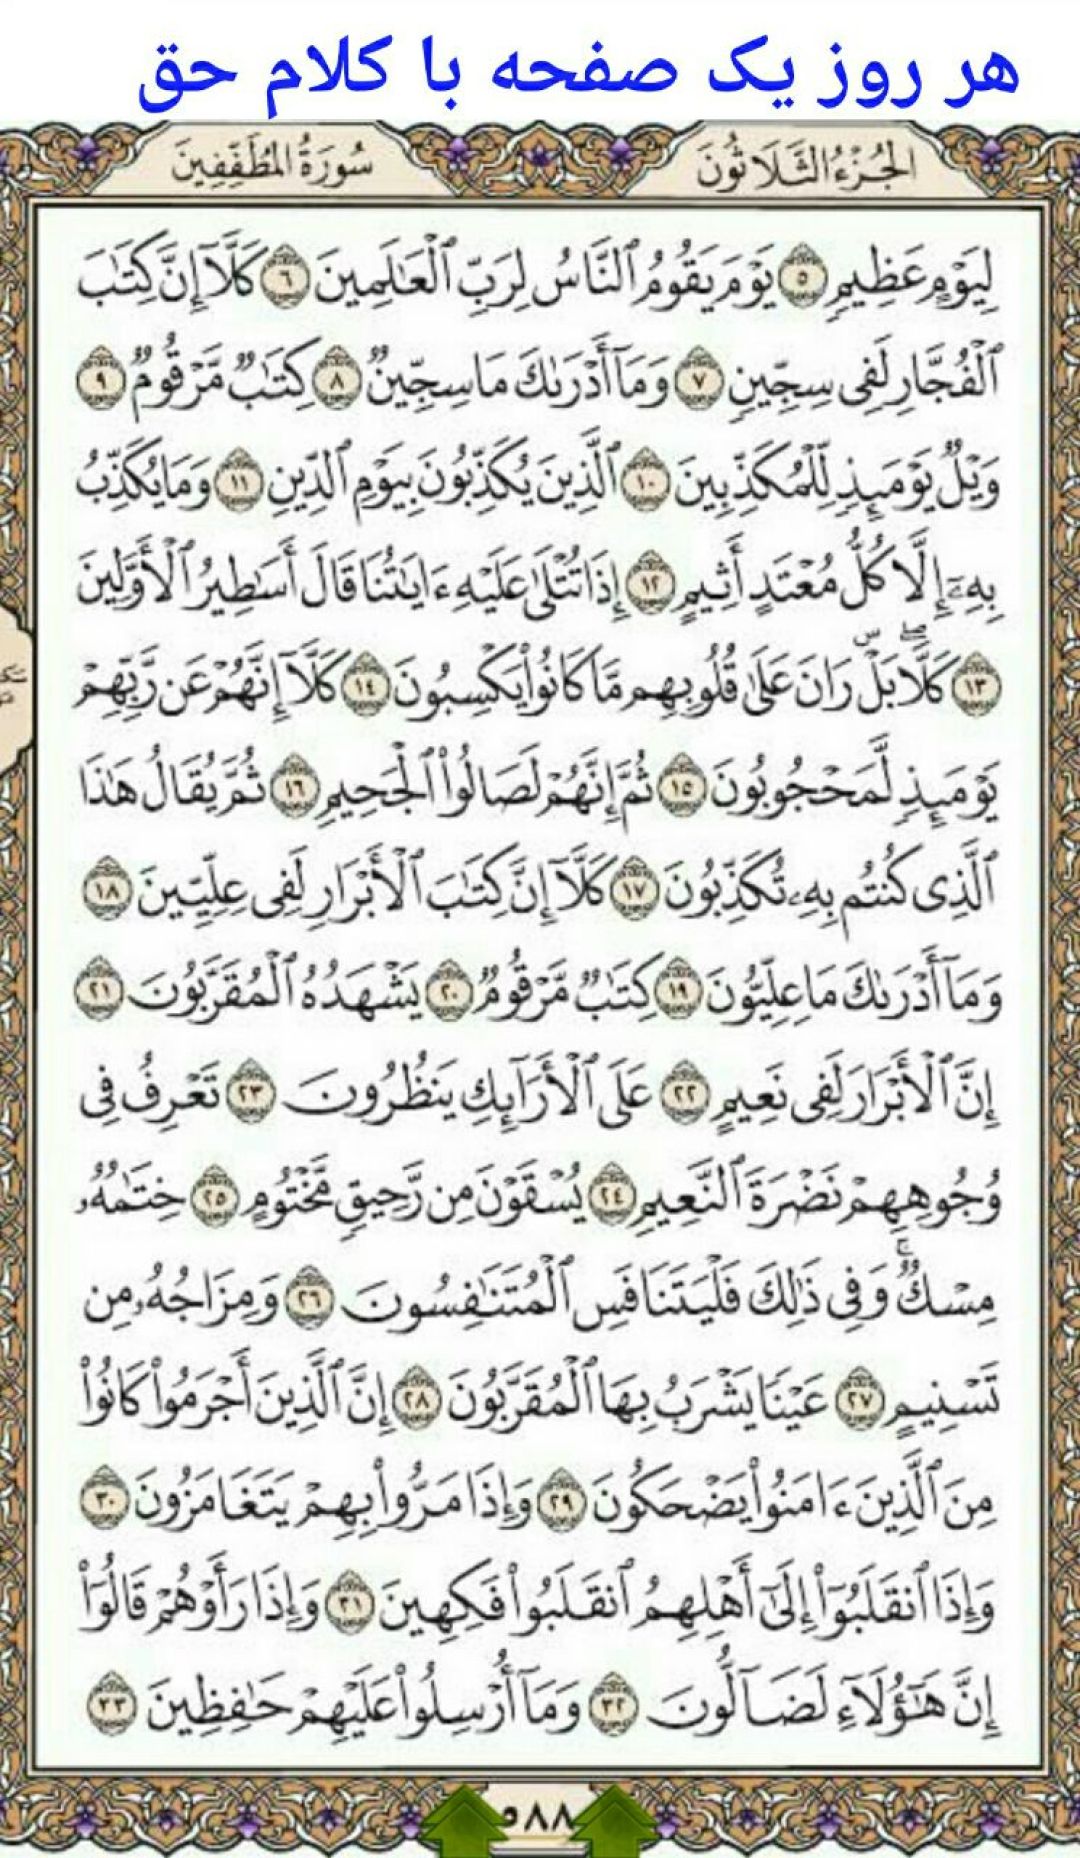 هر روز یک صفحه با کلام حق
الجُزْءُ الثَّلَاثُونَ
سُورَةُ المُطَفِّفِينَ
لِيَوْمٍ عَظِيمٍ ٥ يَوْمَ يَقُومُ ٱلنَّاسُ لِرَبِّ ٱلْعَٰلَمِينَ ٦ كَلَّآ إِنَّ كِتَٰبَ
ٱلْفُجَّارِ لَفِى سِجِّينٍ ٧ وَمَآ أَدْرَىٰكَ مَا سِجِّينٌ ٨ كِتَٰبٌ مَّرْقُومٌ ٩
وَيْلٌ يَوْمَئِذٍ لِّلْمُكَذِّبِينَ ١٠ ٱلَّذِينَ يُكَذِّبُونَ بِيَوْمِ ٱلدِّينِ ١١ وَمَا يُكَذِّبُ
بِهِۦٓ إِلَّا كُلُّ مُعْتَدٍ أَثِيمٍ ١٢ إِذَا تُتْلَىٰ عَلَيْهِ ءَايَٰتُنَا قَالَ أَسَٰطِيرُ ٱلْأَوَّلِينَ
١٣ كَلَّا ۖ بَلْ ۜ رَانَ عَلَىٰ قُلُوبِهِم مَّا كَانُوا۟ يَكْسِبُونَ ١٤ كَلَّآ إِنَّهُمْ عَن رَّبِّهِمْ
يَوْمَئِذٍ لَّمَحْجُوبُونَ ١٥ ثُمَّ إِنَّهُمْ لَصَالُوا۟ ٱلْجَحِيمِ ١٦ ثُمَّ يُقَالُ هَٰذَا
ٱلَّذِى كُنتُم بِهِۦ تُكَذِّبُونَ ١٧ كَلَّآ إِنَّ كِتَٰبَ ٱلْأَبْرَارِ لَفِى عِلِّيِّينَ ١٨
وَمَآ أَدْرَىٰكَ مَا عِلِّيُّونَ ١٩ كِتَٰبٌ مَّرْقُومٌ ٢٠ يَشْهَدُهُ ٱلْمُقَرَّبُونَ ٢١
إِنَّ ٱلْأَبْرَارَ لَفِى نَعِيمٍ ٢٢ عَلَى ٱلْأَرَآئِكِ يَنظُرُونَ ٢٣ تَعْرِفُ فِى
وُجُوهِهِمْ نَضْرَةَ ٱلنَّعِيمِ ٢٤ يُسْقَوْنَ مِن رَّحِيقٍ مَّخْتُومٍ ٢٥ خِتَٰمُهُۥ
مِسْكٌ ۚ وَفِى ذَٰلِكَ فَلْيَتَنَافَسِ ٱلْمُتَنَٰفِسُونَ ٢٦ وَمِزَاجُهُۥ مِن
تَسْنِيمٍ ٢٧ عَيْنًا يَشْرَبُ بِهَا ٱلْمُقَرَّبُونَ ٢٨ إِنَّ ٱلَّذِينَ أَجْرَمُوا۟ كَانُوا۟
مِنَ ٱلَّذِينَ ءَامَنُوا۟ يَضْحَكُونَ ٢٩ وَإِذَا مَرُّوا۟ بِهِمْ يَتَغَامَزُونَ ٣٠
وَإِذَا ٱنقَلَبُوٓا۟ إِلَىٰٓ أَهْلِهِمُ ٱنقَلَبُوا۟ فَكِهِينَ ٣١ وَإِذَا رَأَوْهُمْ قَالُوٓا۟
إِنَّ هَٰٓؤُلَآءِ لَضَآلُّونَ ٣٢ وَمَآ أُرْسِلُوا۟ عَلَيْهِمْ حَٰفِظِينَ ٣٣
٥٨٨